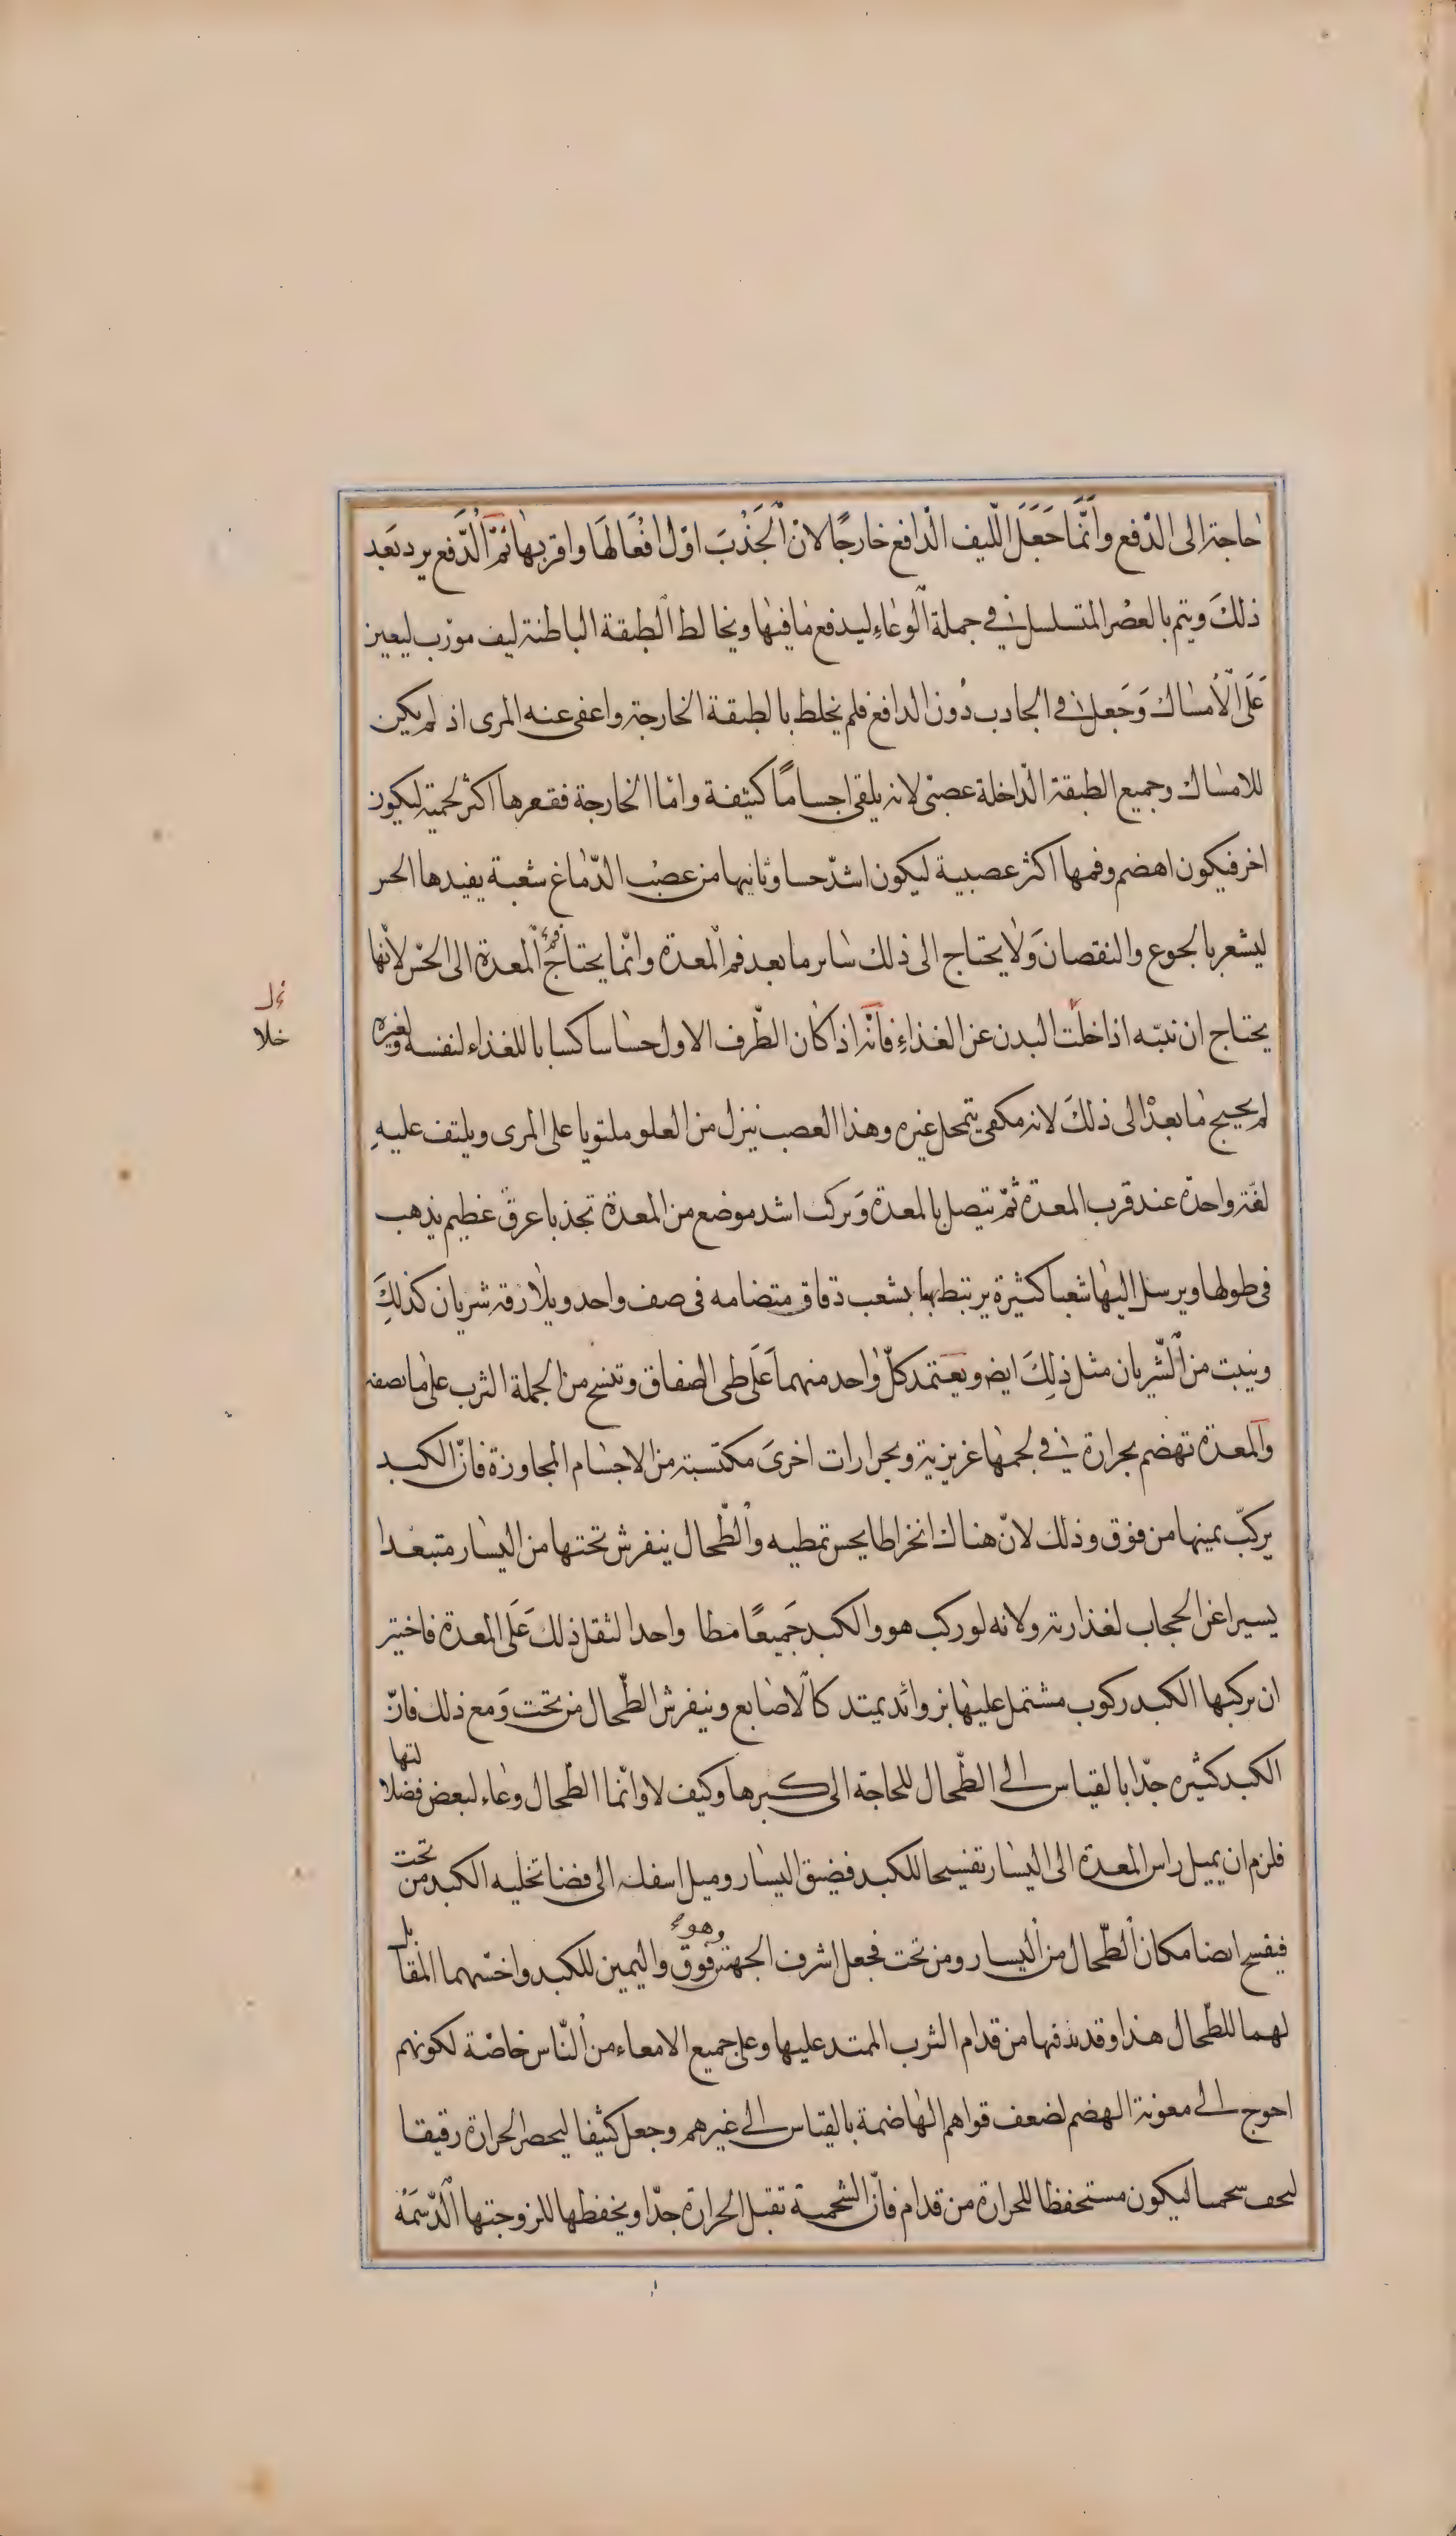 حاجة الى الدّفع وانّما جَعَلَ اللّيف الدافع خارجًا لانّ الْجَذْبَ اوّل افْعَالهَا واقربها ثمّ الدَّفع يرد بَعد
ذلكَ ويتم بالعصْر المتسلسل فى جملة الْوعَاءِ ليدفع مَا فيهَا ويخالط الطبقة الباطنة ليف مورّب ليعين
عَلَى الْأمساك وَجَعل فى الجاذب دُون الدافع فلم يخلط بالطبقة الخارجة واعفى عنه المرى اذ لم يكن
للامساك وجميع الطبقة الداخلة عصبىّ لانه يلقى اجسامًا كثيفة وامّا الخارجة فقعرها اكثر لحمية ليكون
احر فيكون اهضم وفمها اكثر عصبية ليكون اشدّ حسا وياتيها من عصب الدّماغ شعبة يفيدها الحس
ليشعر بالجوع والنقصان وَلا يحتاج الى ذلك ساير ما بعد فم المعدة وانّما يحتاج فم المعدة الى الحسّ لأنّها
يحتاج ان تنبّه اذا خلت البدن عن الغذاءِ فانّه اذا كان الطّرف الاول حساسا كسابا للغذاء لنفسه ولغيره
لم يحيج مَا بعدْ الى ذلكَ لانه مكفى بتمحل غيره وهذا العصب ينزل من العلو ملتويا على المرى ويلتف عليهِ
لفّة واحدة عند قرب المعدة ثمّ يتصل بالمعدة وَيركب اشد موضع من المعدة تحدبا عرق عظيم يذهب
فى طولها ويرسل اليهَا شعبا كثيرة يرتبط بها بشعب دقاق متضامه فى صف واحد ويلازقه شريان كذلكَ
وينبت من الشّريان مثل ذلِكَ ايض ويعتمد كلّ واحد منهما عَلَى طى الصفاق وتنسج من الجملة الثرب على ما نصفه
والمعدة تهضم بحرارة فى لحمهَا غريزية وبحرارات اخرىَ مكتسبة من الاجسام المجاورة فانّ الكبد
يركبّ يمينها من فوق وذلك لانّ هناك انخراطا يحسن تمطيه والطّحال ينفرش تحتها من اليسار متبعدا
يسيرا عن الحجاب لقذارته ولانه لو ركب هو والكبد جَميعًا مطا واحدا لثقل ذلكَ عَلَى المعدة فاختير
ان يركبها الكبد ركوب مشتمل عليهَا بزوائد يمتد كالاصابع وينفرش الطّحال من تحت وَمع ذلك فانّ
الكبد كثيره جدّا بالقياس الى الطّحال للحاجة الى كبرها وكيف لا وانّما الطّحال وعاء لبعض فضلا لتها
فلزم ان يميل راس المعدة الى اليسار تفسيحا للكبد فضيق اليسار وميل اسفله الى فضا تخليه الكبد من تحت
فيفسح ايضا مكان الطّحال من اليسار ومن تحت فجعل اشرف الجهتين وهو فوق واليمين للكبد واخسّهما المقابل
لهما للطّحال هذا وقد يدفها من قدام الثرب الممتد عليها وعلى جميع الامعاء من النّاس خاصّة لكونهم
احوج الى معونة الهضم لضعف قواهم الهَاضمة بالقياس الى غيرهم وجعل كثيفا ليحصر الحرارة رقيقا
ليخف شحميا ليكون مستحفظا للحرارة من قدام فانّ الشحمية تقبل الحرارة جدّا ويحفظها للزوجتها الدّسمَة
خلا